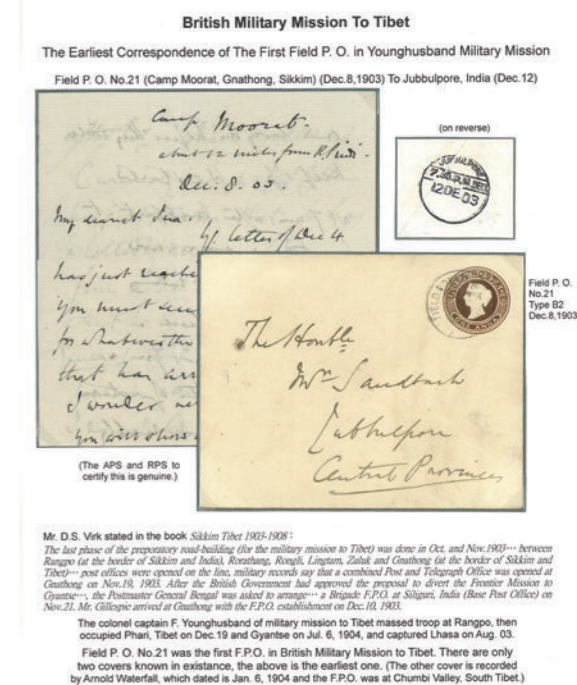 British Military Mission To Tibet
The Earliest Correspondence of The First Field P. O. in Younghusband Military Mission
Field P. O. No.21 (Camp Moorat, Gnathong, Sikkim) (Dec.8,1903) To Jubbulpore, India (Dec.12)
Camp Moorat.
about 12 miles from R. Pindi.
Dec. 8. 03.
My dearest Ina
Yr letter of Dec 4
has just reache
you must
for whatever the
that has arr
I wonder
you will show
(on reverse)
JUBBULPORE
7.30.P.M.DEL
12DE03
FIELD P
INDIA POSTAGE
ONE ANNA
Field P. O.
No.21
Type B2
Dec.8,1903
The Honble
Mrs Sandbach
Jubbulpore
Central Provinces
(The APS and RPS to
certify this is genuine.)
Mr. D.S. Virk stated in the book Sikkim Tibet 1903-1908 :
The last phase of the preporatory road-building (for the military mission to Tibet) was done in Oct. and Nov.1903··· between
Rangpo (at the border of Sikkim and India), Rorathang, Rongli, Lingtam, Zuluk and Gnathong (at the border of Sikkim and
Tibet)··· post offices were opened on the line, military records say that a combined Post and Telegraph Office was opened at
Gnathong on Nov.19, 1903. After the British Government had approved the proposal to divert the Frontier Mission to
Gyantse···, the Postmaster General Bengal was asked to arrange··· a Brigade F.P.O. at Siliguri, India (Base Post Office) on
Nov.21. Mr. Gillespie arrived at Gnathong with the F.P.O. establishment on Dec.10, 1903.
The colonel captain F. Younghusband of military mission to Tibet massed troop at Rangpo, then
occupied Phari, Tibet on Dec.19 and Gyantse on Jul. 6, 1904, and captured Lhasa on Aug. 03.
Field P. O. No.21 was the first F.P.O. in British Military Mission to Tibet. There are only
two covers known in existance, the above is the earliest one. (The other cover is recorded
by Arnold Waterfall, which dated is Jan. 6, 1904 and the F.P.O. was at Chumbi Valley, South Tibet.)